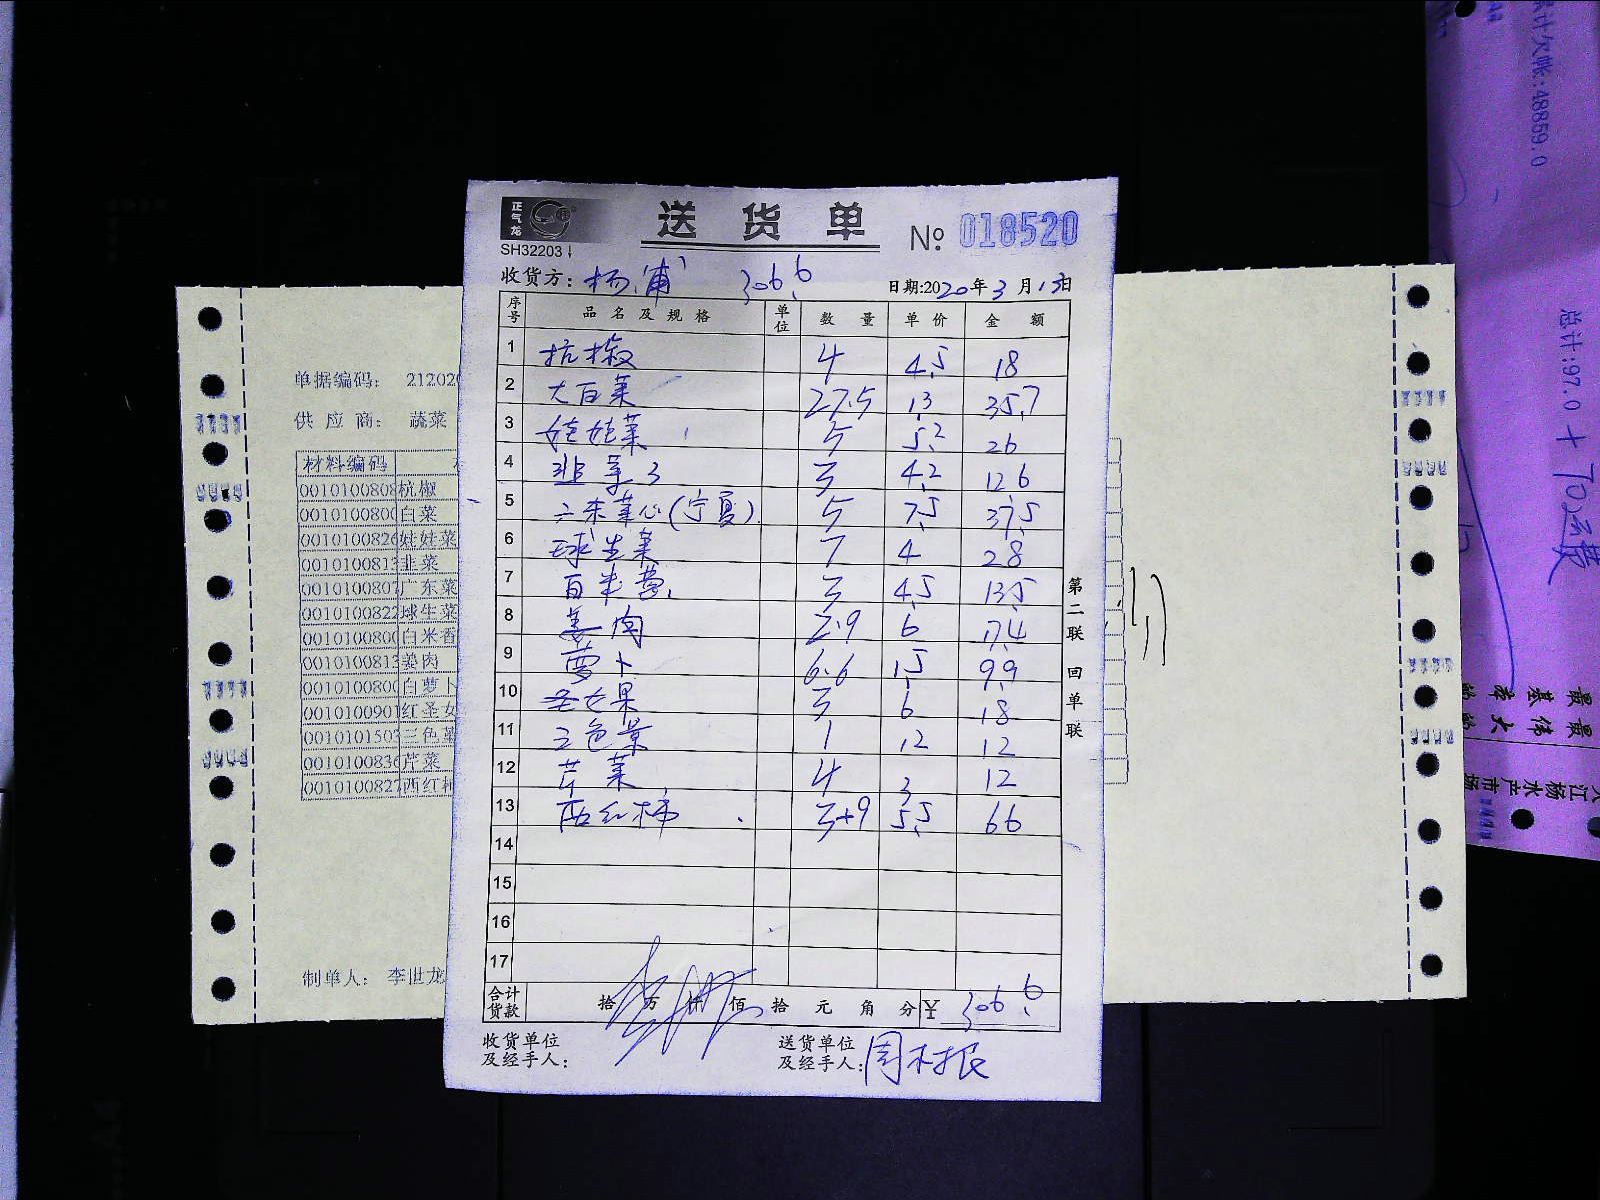 正气龙
送货单
№ 018520
SH32203
收货方: 杨浦 306.6
日期:2020年3月13日
序号 品名及规格 单位 数量 单价 金额
1 杭椒 4 4.5 18
2 大白菜 27.5 1.3 35.7
3 娃娃菜 5 5.2 26
4 韭菜 3 4.2 12.6
5 广东菜心(宁夏) 5 7.5 37.5
6 球生菜 7 4 28
7 白米苋 3 4.5 13.5
8 姜肉 2.9 6 17.4
9 萝卜 6.6 1.5 9.9
10 圣女果 3 6 18
11 三色堇 1 12 12
12 芹菜 4 3 12
13 西红柿 3+9 5.5 66
14
15
16
17
合计货款 拾 万 仟 佰 拾 元 角 分 ¥ 306.6
收货单位及经手人:
送货单位及经手人: 周村民
第二联 回单联
单据编码: 21202
供应商: 蔬菜
材料编码
0010100808 杭椒
001010080 白菜
001010082 娃娃菜
001010081 韭菜
001010080 广东菜
001010082 球生菜
001010080 白米
001010081 姜肉
001010080 白萝卜
001010090 红圣女
001010150 三色
001010083 芹菜
001010082 西红
制单人: 李世龙
累计欠帐:48859.0
总计:97.0 +
江杨水产市场